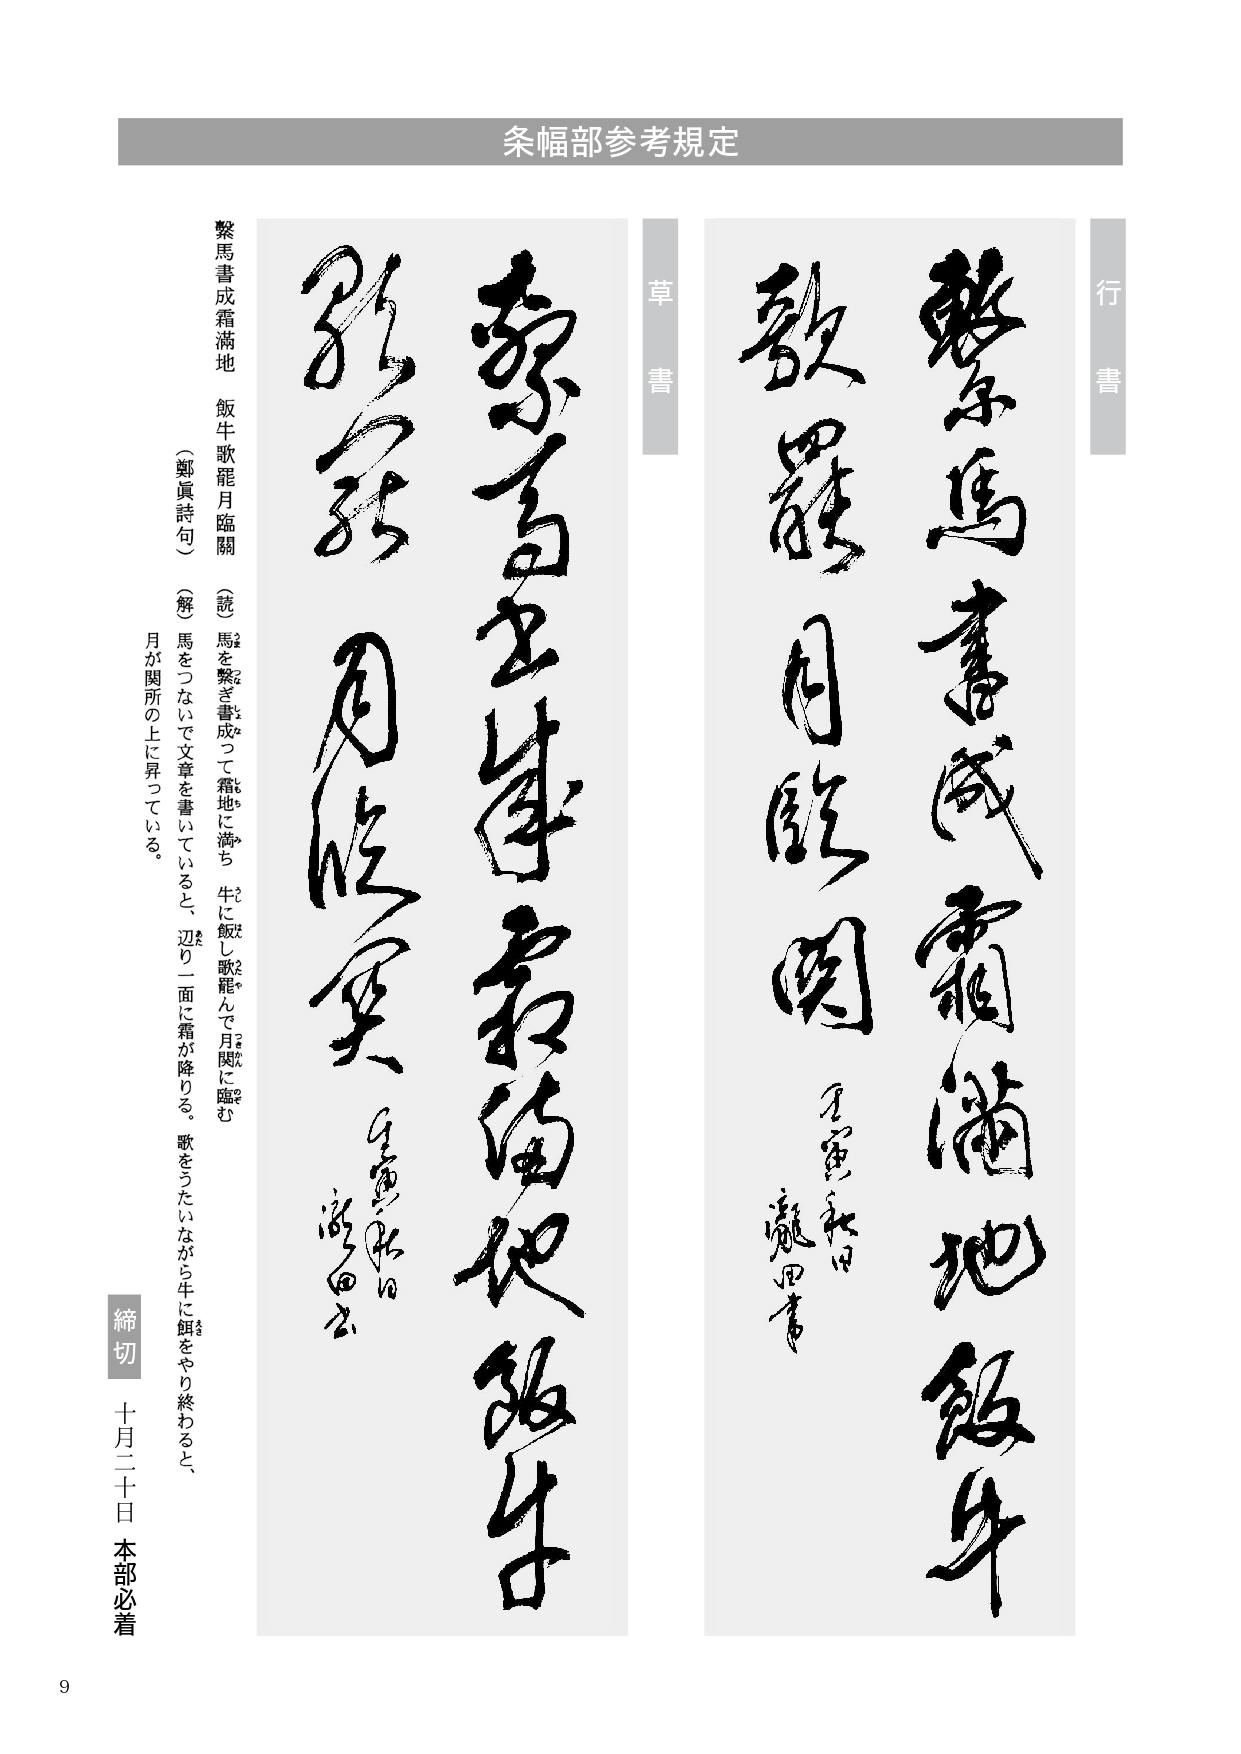 条幅部参考規定
行書
繫馬書成霜滿地飯牛
歌罷月臨關
壬寅秋日
瀧田書
草書
繫馬書成霜滿地飯牛
歌罷月臨關
壬寅秋日
瀧田書
繫馬書成霜滿地　飯牛歌罷月臨關　（読）馬を繫ぎ書成って霜地に満ち　牛に飯し歌罷んで月関に臨む
（鄭眞詩句）　（解）馬をつないで文章を書いていると、辺り一面に霜が降りる。歌をうたいながら牛に餌をやり終わると、
月が関所の上に昇っている。
締切　十月二十日　本部必着
9